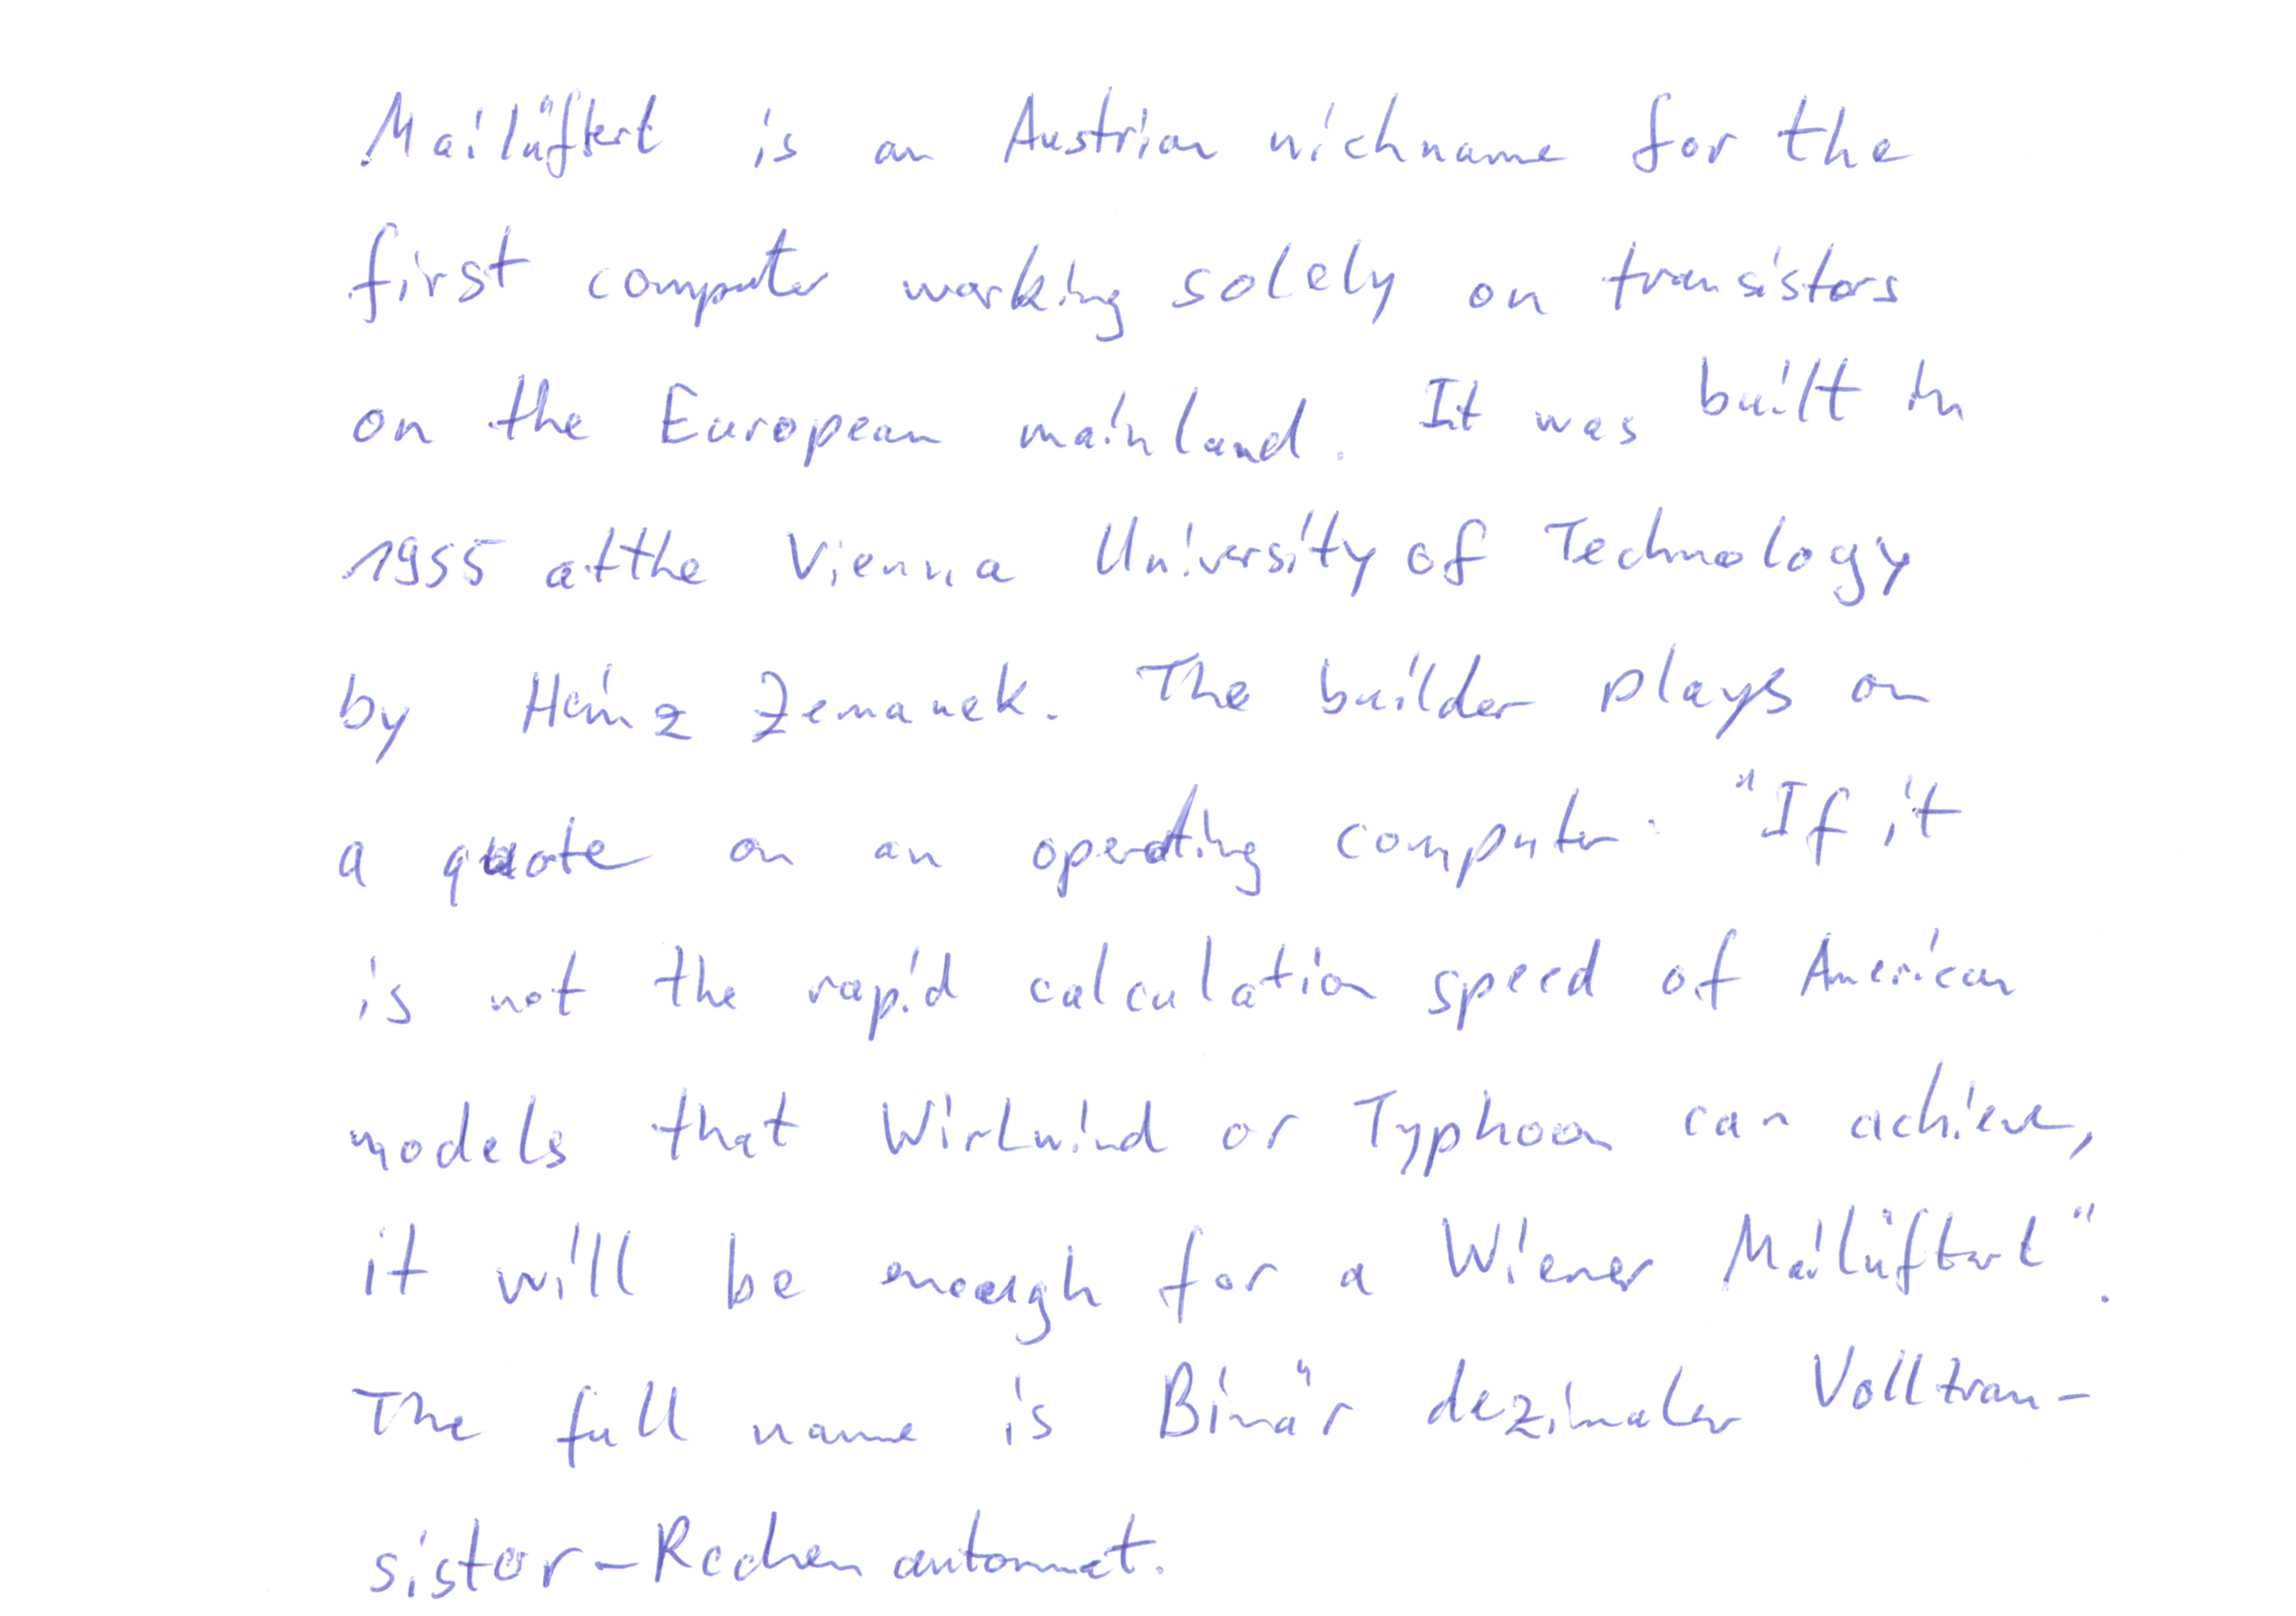 Mailüfterl is an Austrian nickname for the
first computer working solely on transistors
on the European mainland. It was built in
1955 at the Vienna University of Technology
by Heinz Zemanek. The builder plays on
a quote on an operating computer: "If it
is not the rapid calculation speed of American
models that Wirlwind or Typhoon can achieve,
it will be enough for a Wiener Mailüfterl".
The full name is Binär dezimaler Volltran-
sistor-Rechenautomat.